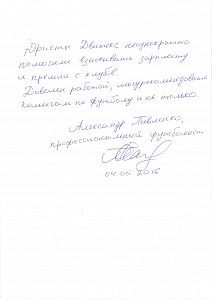 Юристы Двитекс неоднократно
помогали взыскивать зарплату
и премии с клубов
Доволен работой, могу рекомендовать
коллегам по футболу и не только
Александр Павленко,
профессиональный футболист
04.05 2016